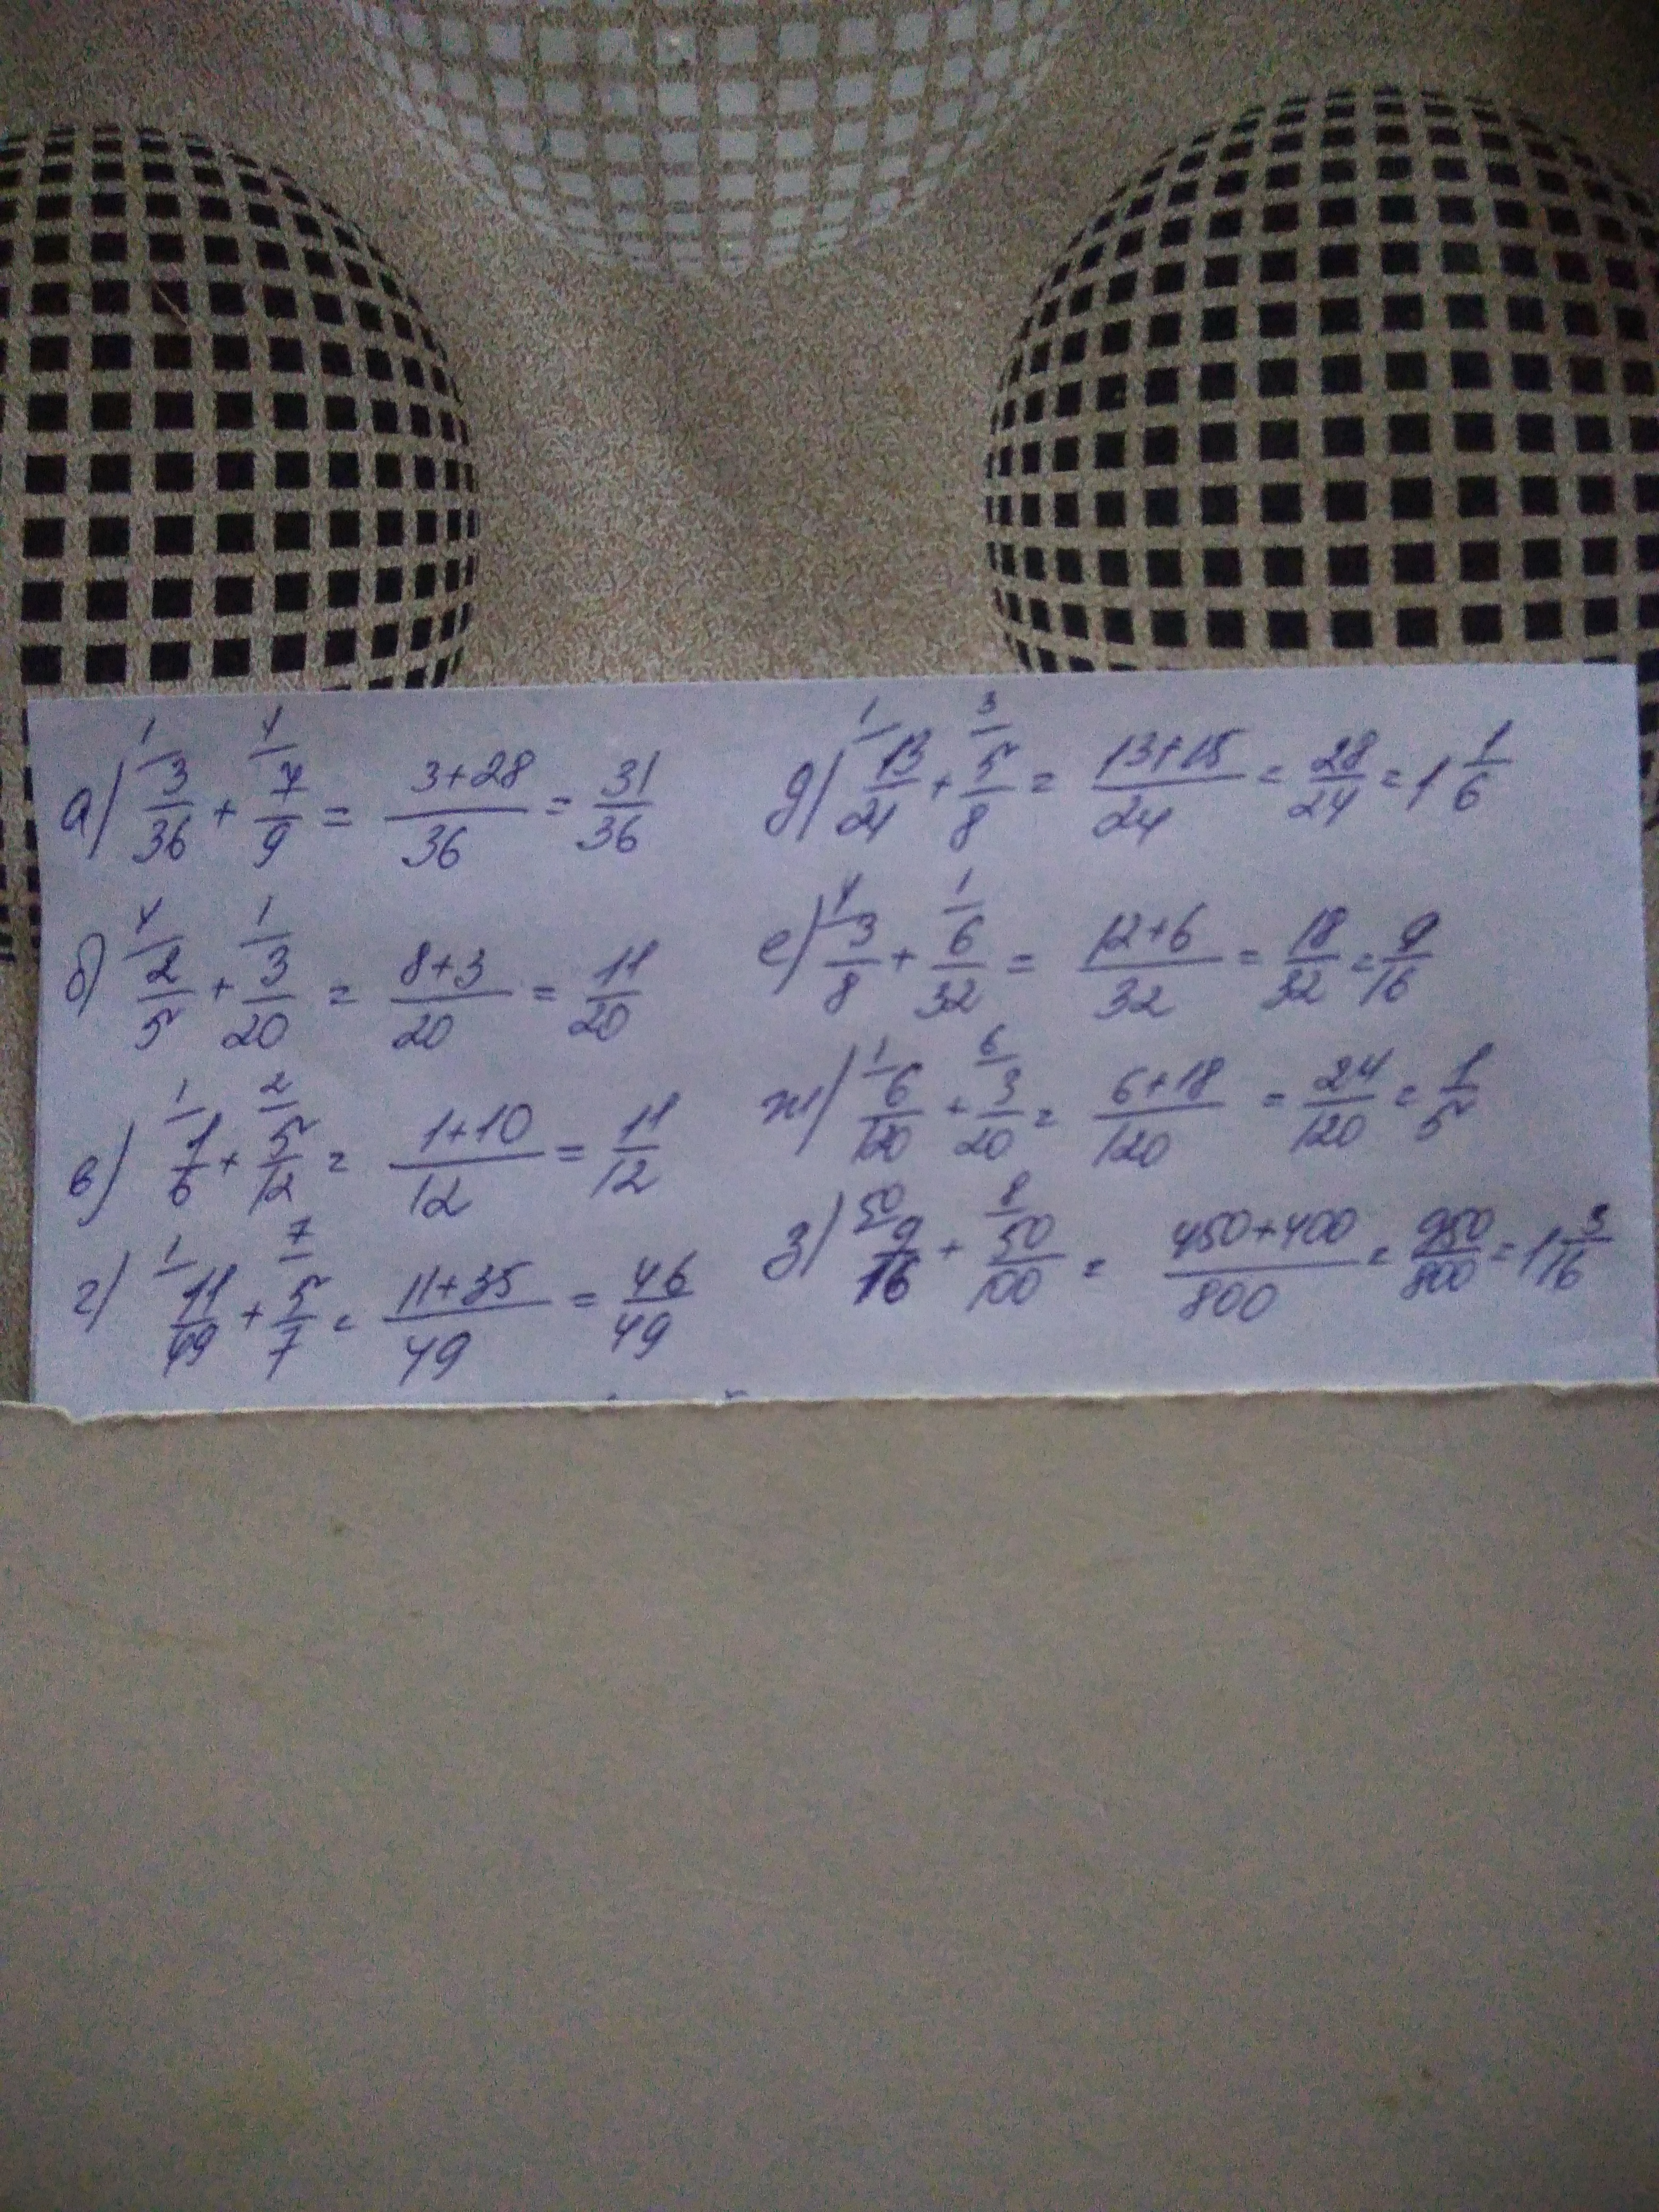 а) 3/36 + 7/9 = 3+28/36 = 31/36
б) 2/5 + 3/20 = 8+3/20 = 11/20
в) 1/6 + 5/12 = 1+10/12 = 11/12
г) 11/49 + 5/7 = 11+35/49 = 46/49
д) 13/24 + 5/8 = 13+15/24 = 28/24 = 1 1/6
е) 3/8 + 6/32 = 12+6/32 = 18/32 = 9/16
ж) 6/120 + 3/20 = 6+18/120 = 24/120 = 1/5
з) 9/16 + 50/100 = 450+400/800 = 950/800 = 1 3/16